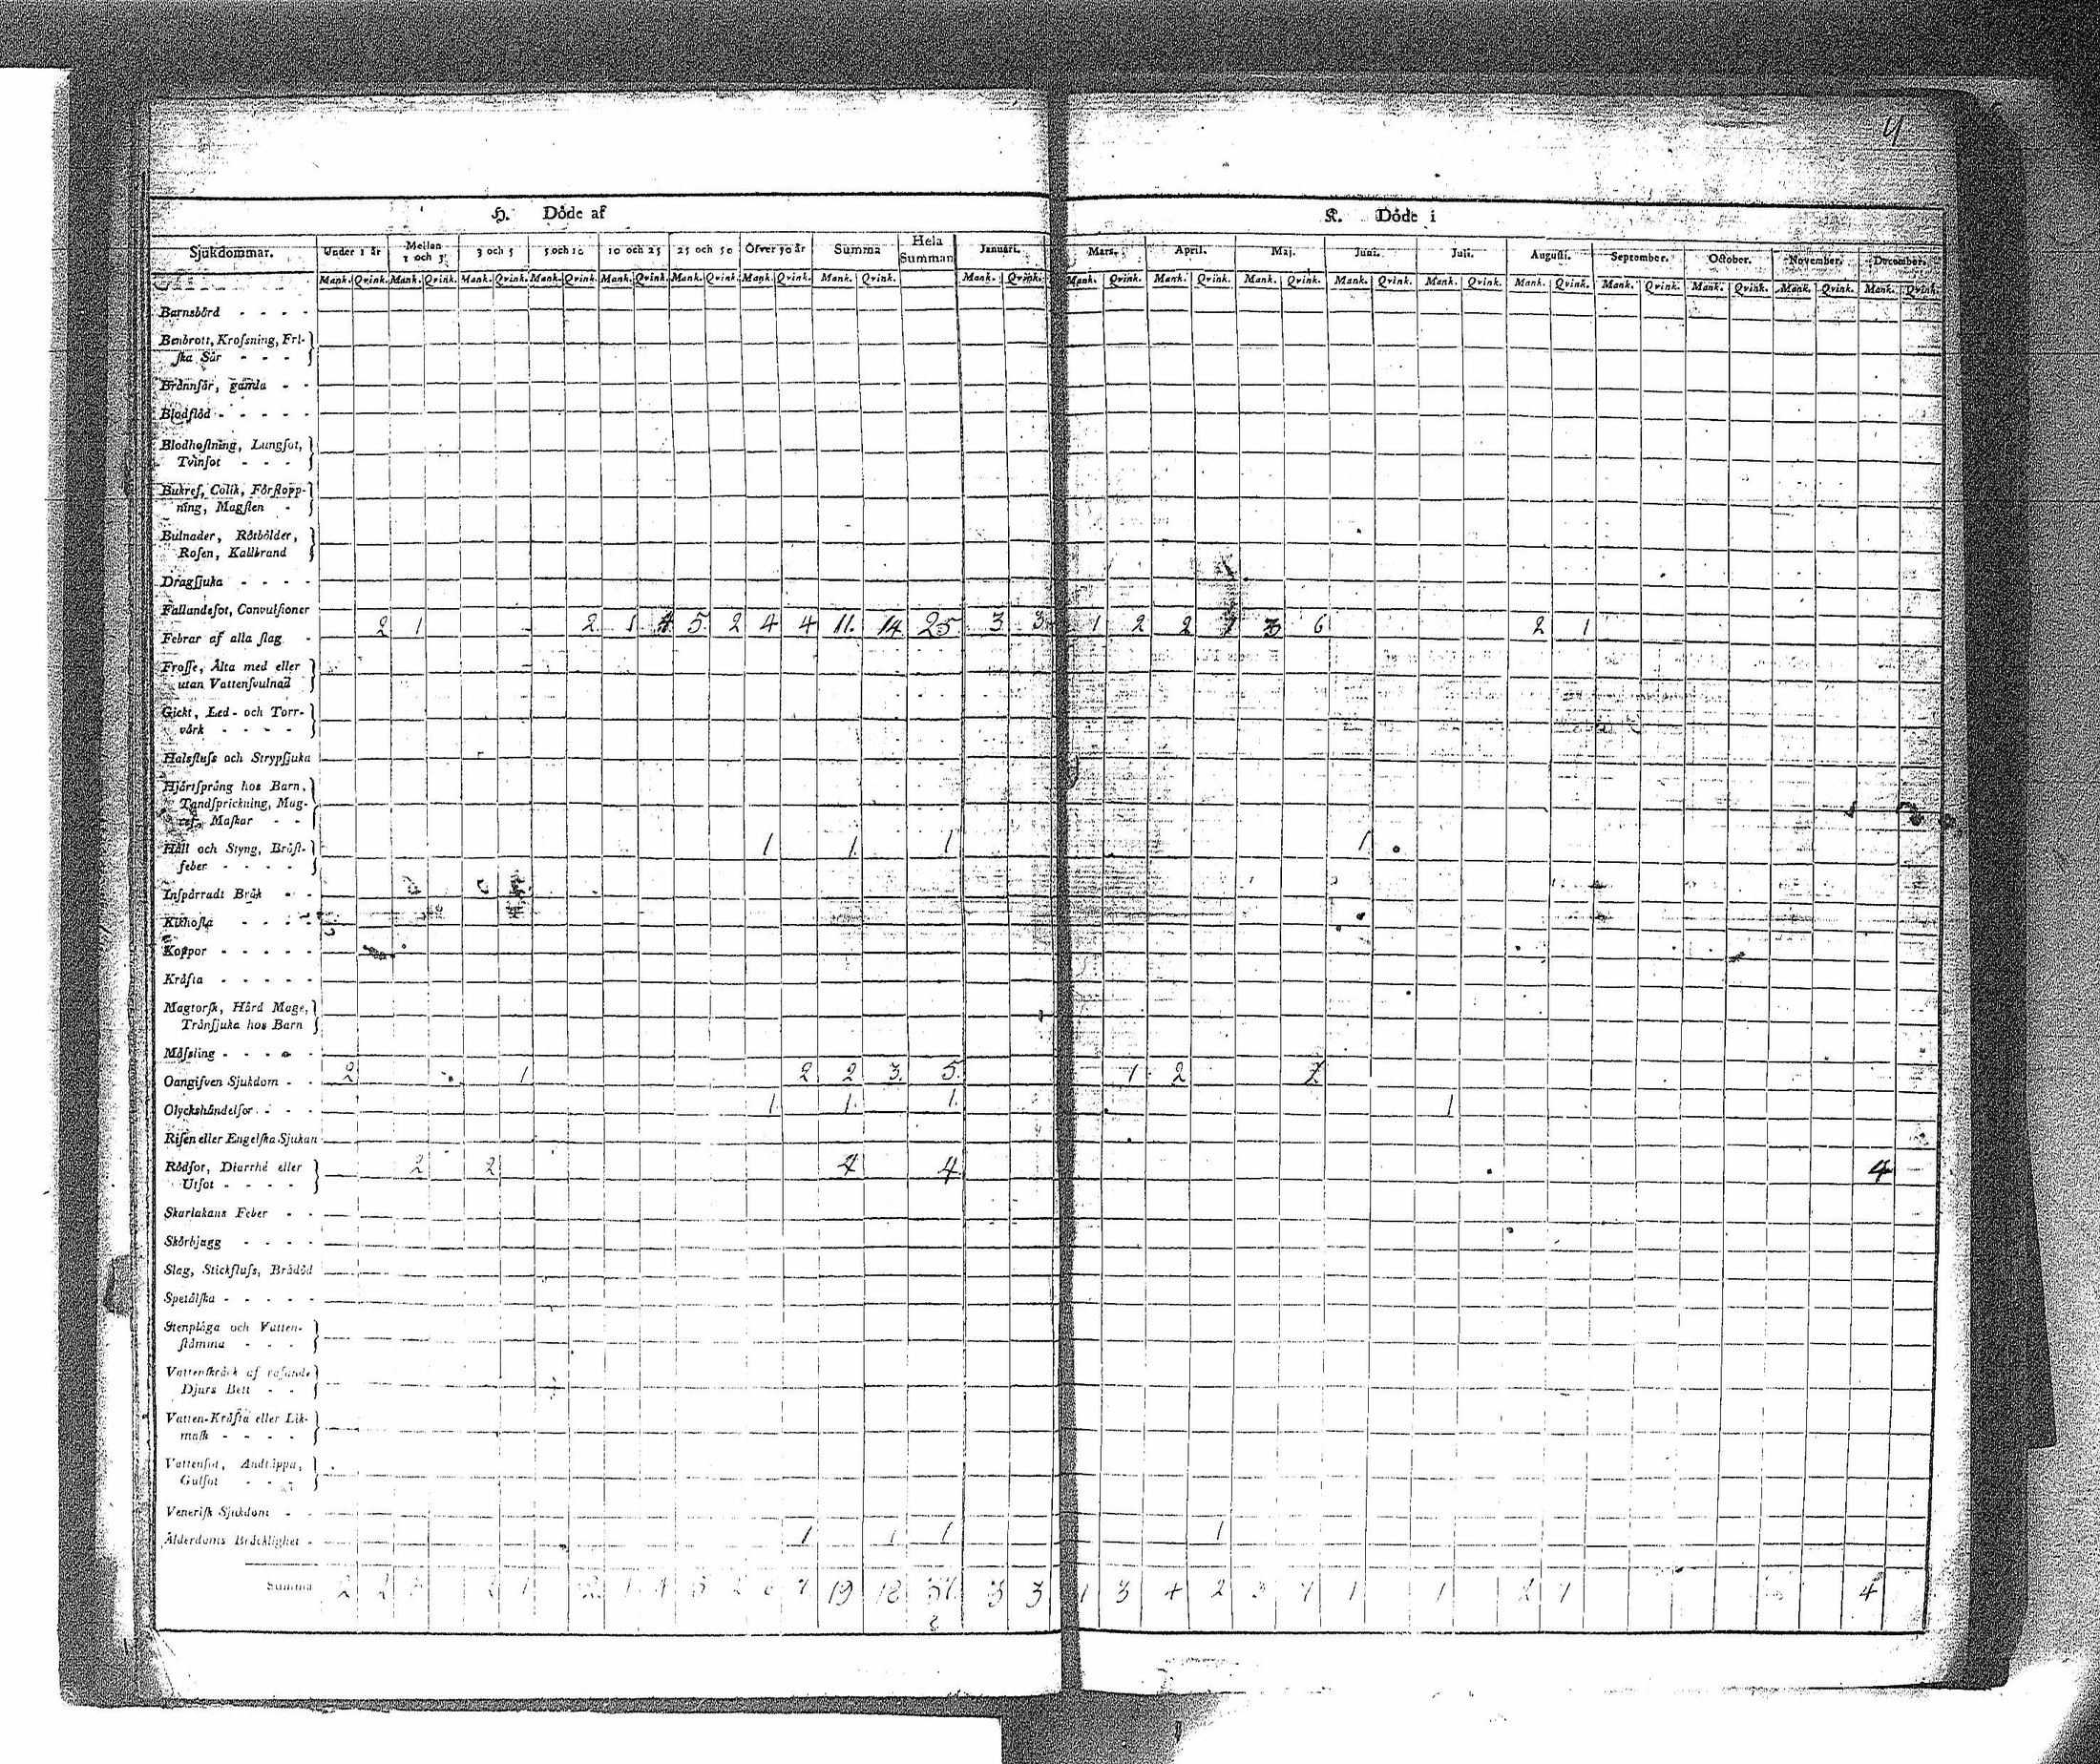 4
H. Döde af
K. Döde i
Sjukdommar. Under 1 år Mellan 1 och 3 3 och 5 5 och 10 10 och 25 25 och 50 Öfver 50 år Summa Hela Summan Januari. Mars. April. Maj. Juni. Juli. Augusti. September. October. November. December.
Mank. Qvink. Mank. Qvink. Mank. Qvink. Mank. Qvink. Mank. Qvink. Mank. Qvink. Mank. Qvink. Mank. Qvink. Mank. Qvink. Mank. Qvink. Mank. Qvink. Mank. Qvink. Mank. Qvink. Mank. Qvink. Mank. Qvink. Mank. Qvink. Mank. Qvink. Mank. Qvink. Mank. Qvink.
Barnsbörd - - - -
Benbrott, Krossning, Fri-
ska Sår - - -
Brännsår, gamla - -
Blodflöd - - - - -
Blodhostning, Lungsot,
Tvinsot - - -
Bukref, Colik, Förstopp-
ning, Magsten -
Bulnader, Rötbölder,
Rosen, Kallbrand
Dragsjuka - - - -
Fallandesot, Convulsioner
Febrar af alla slag - 2 1 2 1 4 5 2 4 4 11. 14 25 3 3 1 2 2 1 3 6 2 1
Frossa, Älta med eller
utan Vattensvulnad
Gickt, Led- och Torr-
värk - - - -
Halsfluss och Strypsjuka
Hjärtsprång hos Barn,
Tandsprickning, Mag-
ref, Maskar - -
Håll och Styng, Bröst- 1 1. 1 1
feber - - - -
Inspärradt Bråk - -
Kikhosta - - - -
Koppor - - - - -
Kräfta - - - - -
Magtorsk, Hård Mage,
Trånsjuka hos Barn
Mässling - - - -
Oangifven Sjukdom - - 2 1 2 2 3. 5. 1 2 2
Olyckshändelser - - - 1. 1. 1. 1
Risen eller Engelska Sjukan
Rödsot, Diarrhé eller 2 2 4 4 4
Utsot - - - -
Skarlakans Feber - -
Skörbjugg - - - -
Slag, Stickfluss, Brådöd
Spetälska - - - - -
Stenplåga och Vatten-
stämma - - -
Vattenskräck af rasande
Djurs Bett - -
Vatten-Kräfta eller Lik-
mask - - - -
Vattensot, Andtäppa,
Gulsot - - -
Venerisk Sjukdom - -
Ålderdoms Bräcklighet - 1 1 1 1
Summa 2 2 3 2 1 2 1 4 5 2 6 7 19 18 37. 3 3 1 3 4 2 3 1 1 2 1 4